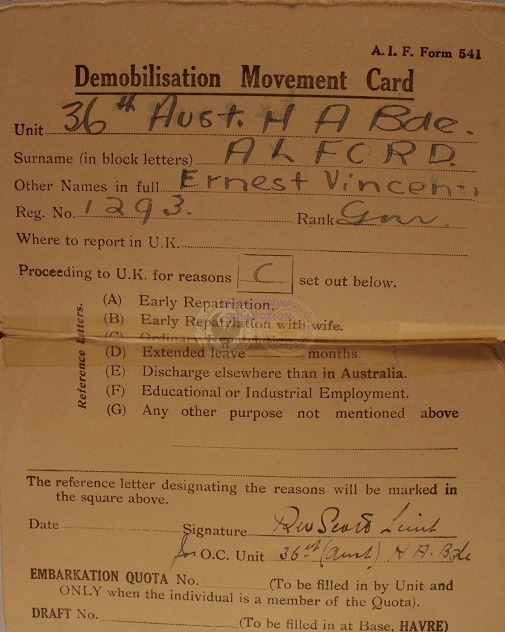 A. I. F. Form 541
Demobilisation Movement Card
Unit 36th Aust. H A Bde.
Surname (in block letters) ALFORD.
Other Names in full Ernest Vincent
Reg. No. 1293. Rank Gnr.
Where to report in U.K.
Proceeding to U.K. for reasons C set out below.
Reference Letters.
(A) Early Repatriation.
(B) Early Repatriation with wife.
(D) Extended leave months.
(E) Discharge elsewhere than in Australia.
(F) Educational or Industrial Employment.
(G) Any other purpose not mentioned above
The reference letter designating the reasons will be marked in
the square above.
Date Signature Scott Lieut
for O.C. Unit 36th (Aust) H A. Bde
EMBARKATION QUOTA No. (To be filled in by Unit and
ONLY when the individual is a member of the Quota).
DRAFT No. (To be filled in at Base, HAVRE)